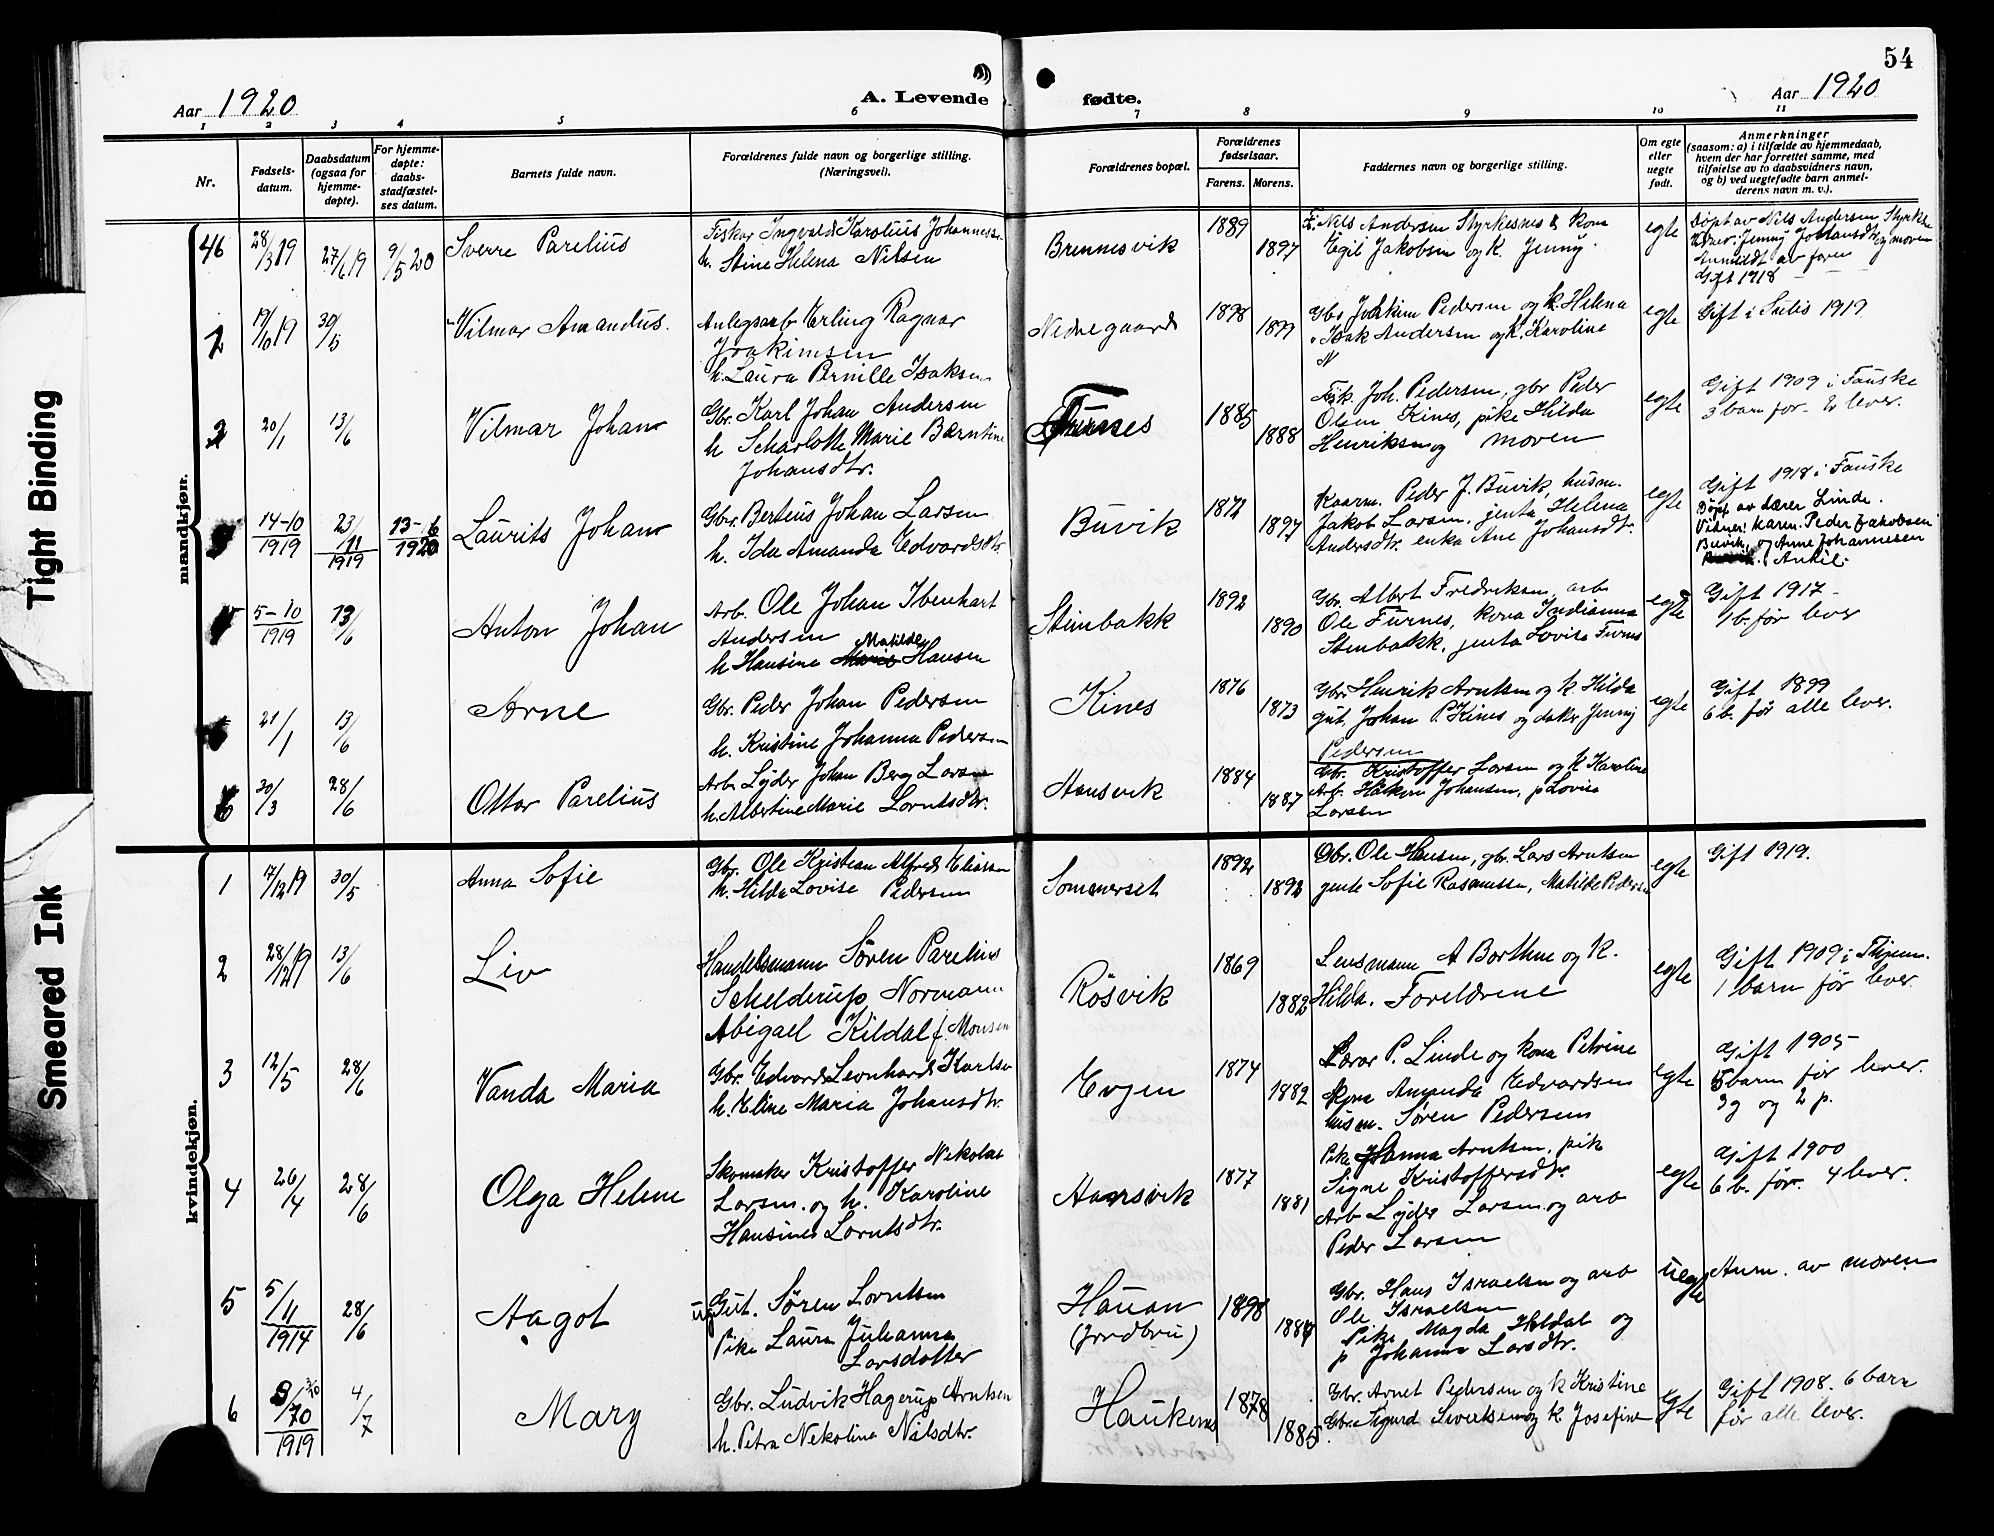 Tight Binding
Smeared Ink
54
Aar 1920
A. Levende fødte.
Aar 1920
1 2 3 4 5 6 7 8 9 10 11
Nr.
Fødsels-datum.
Daabsdatum (ogsaa for hjemme-døpte).
For hjemme-døpte: daabs-stadfæstel-ses datum.
Barnets fulde navn.
Forældrenes fulde navn og borgerlige stilling. (Næringsvei).
Forældrenes bopæl.
Forældrenes fødselsaar.
Farens. Morens.
Faddernes navn og borgerlige stilling.
Om egte eller uegte født.
Anmerkninger (saasom: a) i tilfælde av hjemmedaab, hvem der har forrettet samme, med tilføielse av to daabsvidners navn, og b) ved uegtefødte barn anmel-derens navn m. v.).
mandkjøn.
46 28/3 19 27/6 19 9/5 20 Sverre Parelius
Fisker Ingvald Karolius Johannessen
h. Stine Helena Nilsen
Brennesvik 1889 1897
F. Nils Andersen Styrkesnes & kona
Egil Jakobsen og K. Jenny
egte
Døpt av Nils Andersen Styrkes
Vidner: Jenny Johansdtr og moren
Anmeldt av faren
Gift 1918
19/6 19 30/5 Vilmar Amandus.
Anlegsarb Erling Ragnar
Joakimsen
h. Laura Pernille Isaksen
Nedregaard 1898 1899
Gbr Joakim Pedersen og k. Helena
Isak Andersen og K. Karoline
N
egte
Gift i Sulis 1919
2 20/1 13/6 Vilmar Johan
Gbr. Karl Johan Andersen
h Scharlotte Marie Berntine
Johansdtr.
Furnes 1885 1888
Fisk. Joh. Pedersen, gbr Peder
Olsen Kines, pike Hilda
Henriksen og moren
egte
Gift 1909 i Fauske
3 barn før. 2 lever.
14-10 1919 23/11 1919 13-6 1920 Laurits Johan
Gbr. Berteus Johan Larsen
h. Ida Amanda Edvardsdtr.
Buvik 1872 1897
Kaarm. Peder J. Buvik, husm.
Jakob Larsen, jenta Helena
Andersdtr. enka Ane Johansdtr.
egte
Gift 1918 i Fauske
Döpt av lærer Linde.
Vidner: karm. Peder Jakobsen
Buvik, og Anne Johannesen
Ankil.
5-10 1919 13/6 Anton Johan
Arb. Ole Johan Ibenhart
Andersen
h Hansine Matilde Hansen
Stenbakk 1892 1890
Gbr. Albert Fredriksen, arb
Ole Furnes, kona Indianna
Stenbakk, jenta Lovise Furnes
egte
Gift 1917
1 b. før lever
21/1 13/6 Arne
Gbr. Peder Johan Pedersen
h. Kristine Johanna Pedersen
Kines 1876 1873
Gbr. Henrik Arntsen og k Hilda
gut. Johan P. Kines og datter Jenny
Pedersen
egte
Gift 1899
6 b. før alle lever.
6 30/3 28/6 Ottar Parelius
Arb. Lyder Johan Berg Larsen
h. Albertine Marie Lorntsdtr.
Hansvik 1884 1887
Gbr. Kristoffer Larsen og k Karoline
Arb. Håkon Johansen, p Lovise
Larsen
kvindekjøn.
1 17/12 19 30/5 Anna Sofie
Gbr. Ole Kristian Alfred Eliasen
h. Hilda Lovise Pedersen
Sommerset 1892 1892
Gbr. Ole Hansen, gbr. Lars Arntsen
gente Sofie Rasmussen, Matilde Pedersen
egte
Gift 1919.
2 28/12 19 13/6 Liv
Handelsmann Sören Parelius
Schelderup Normann
Abigael Kildal f. Monsen
Rösvik 1869 1882
Lensmann A Borthne og K.
Hilda. Foreldrene
egte
Gift 1909 i
1 barn før lever.
3 12/5 28/6 Vanda Maria
Gbr. Edvard Leonhard Karlsen
h. Eline Maria Johansdtr.
Evjen 1874 1882
Lærer P. Linde og kona Petrine
kona Amanda Edvardsen
husm. Søren Pedersen
egte
Gift 1905
5 barn før lever.
3 g og 2 p.
4 26/4 28/6 Olga Helene
Skomaker Kristoffer Nikolai
Larsen. og h. Karoline
Hansine Lorntsdtr.
Hansvik 1877 1881
Pike Hanna Arntsen, pik
Signe Kristoffersdtr.
Arb Lyder Larsen og arb
Peder Larsen
egte
Gift 1900
6 b. før. 4 lever.
5 5/11 1914 28/6 Aagot
ug Gut. Søren Lorntsen
Pike Laura Juhanna
Larsdatter
Hauan
1898
Gbr. Hans Israelsen og arb
Ole Israelsen
Pike Magda Hildal og
p Johanna Larsdtr.
uegte
Anm. av moren
6 1919 4/7 Mary
Gbr. Ludvik Hagerup Arntsen
h. Petra Nekolina Nilsdtr.
Haukenes 1878 1885
Gbr. Arnet Pedersen og k Kristine
Gbr. Sigurd Sivertsen og k. Josefine
egte
Gift 1908. 6 barn
før alle lever.